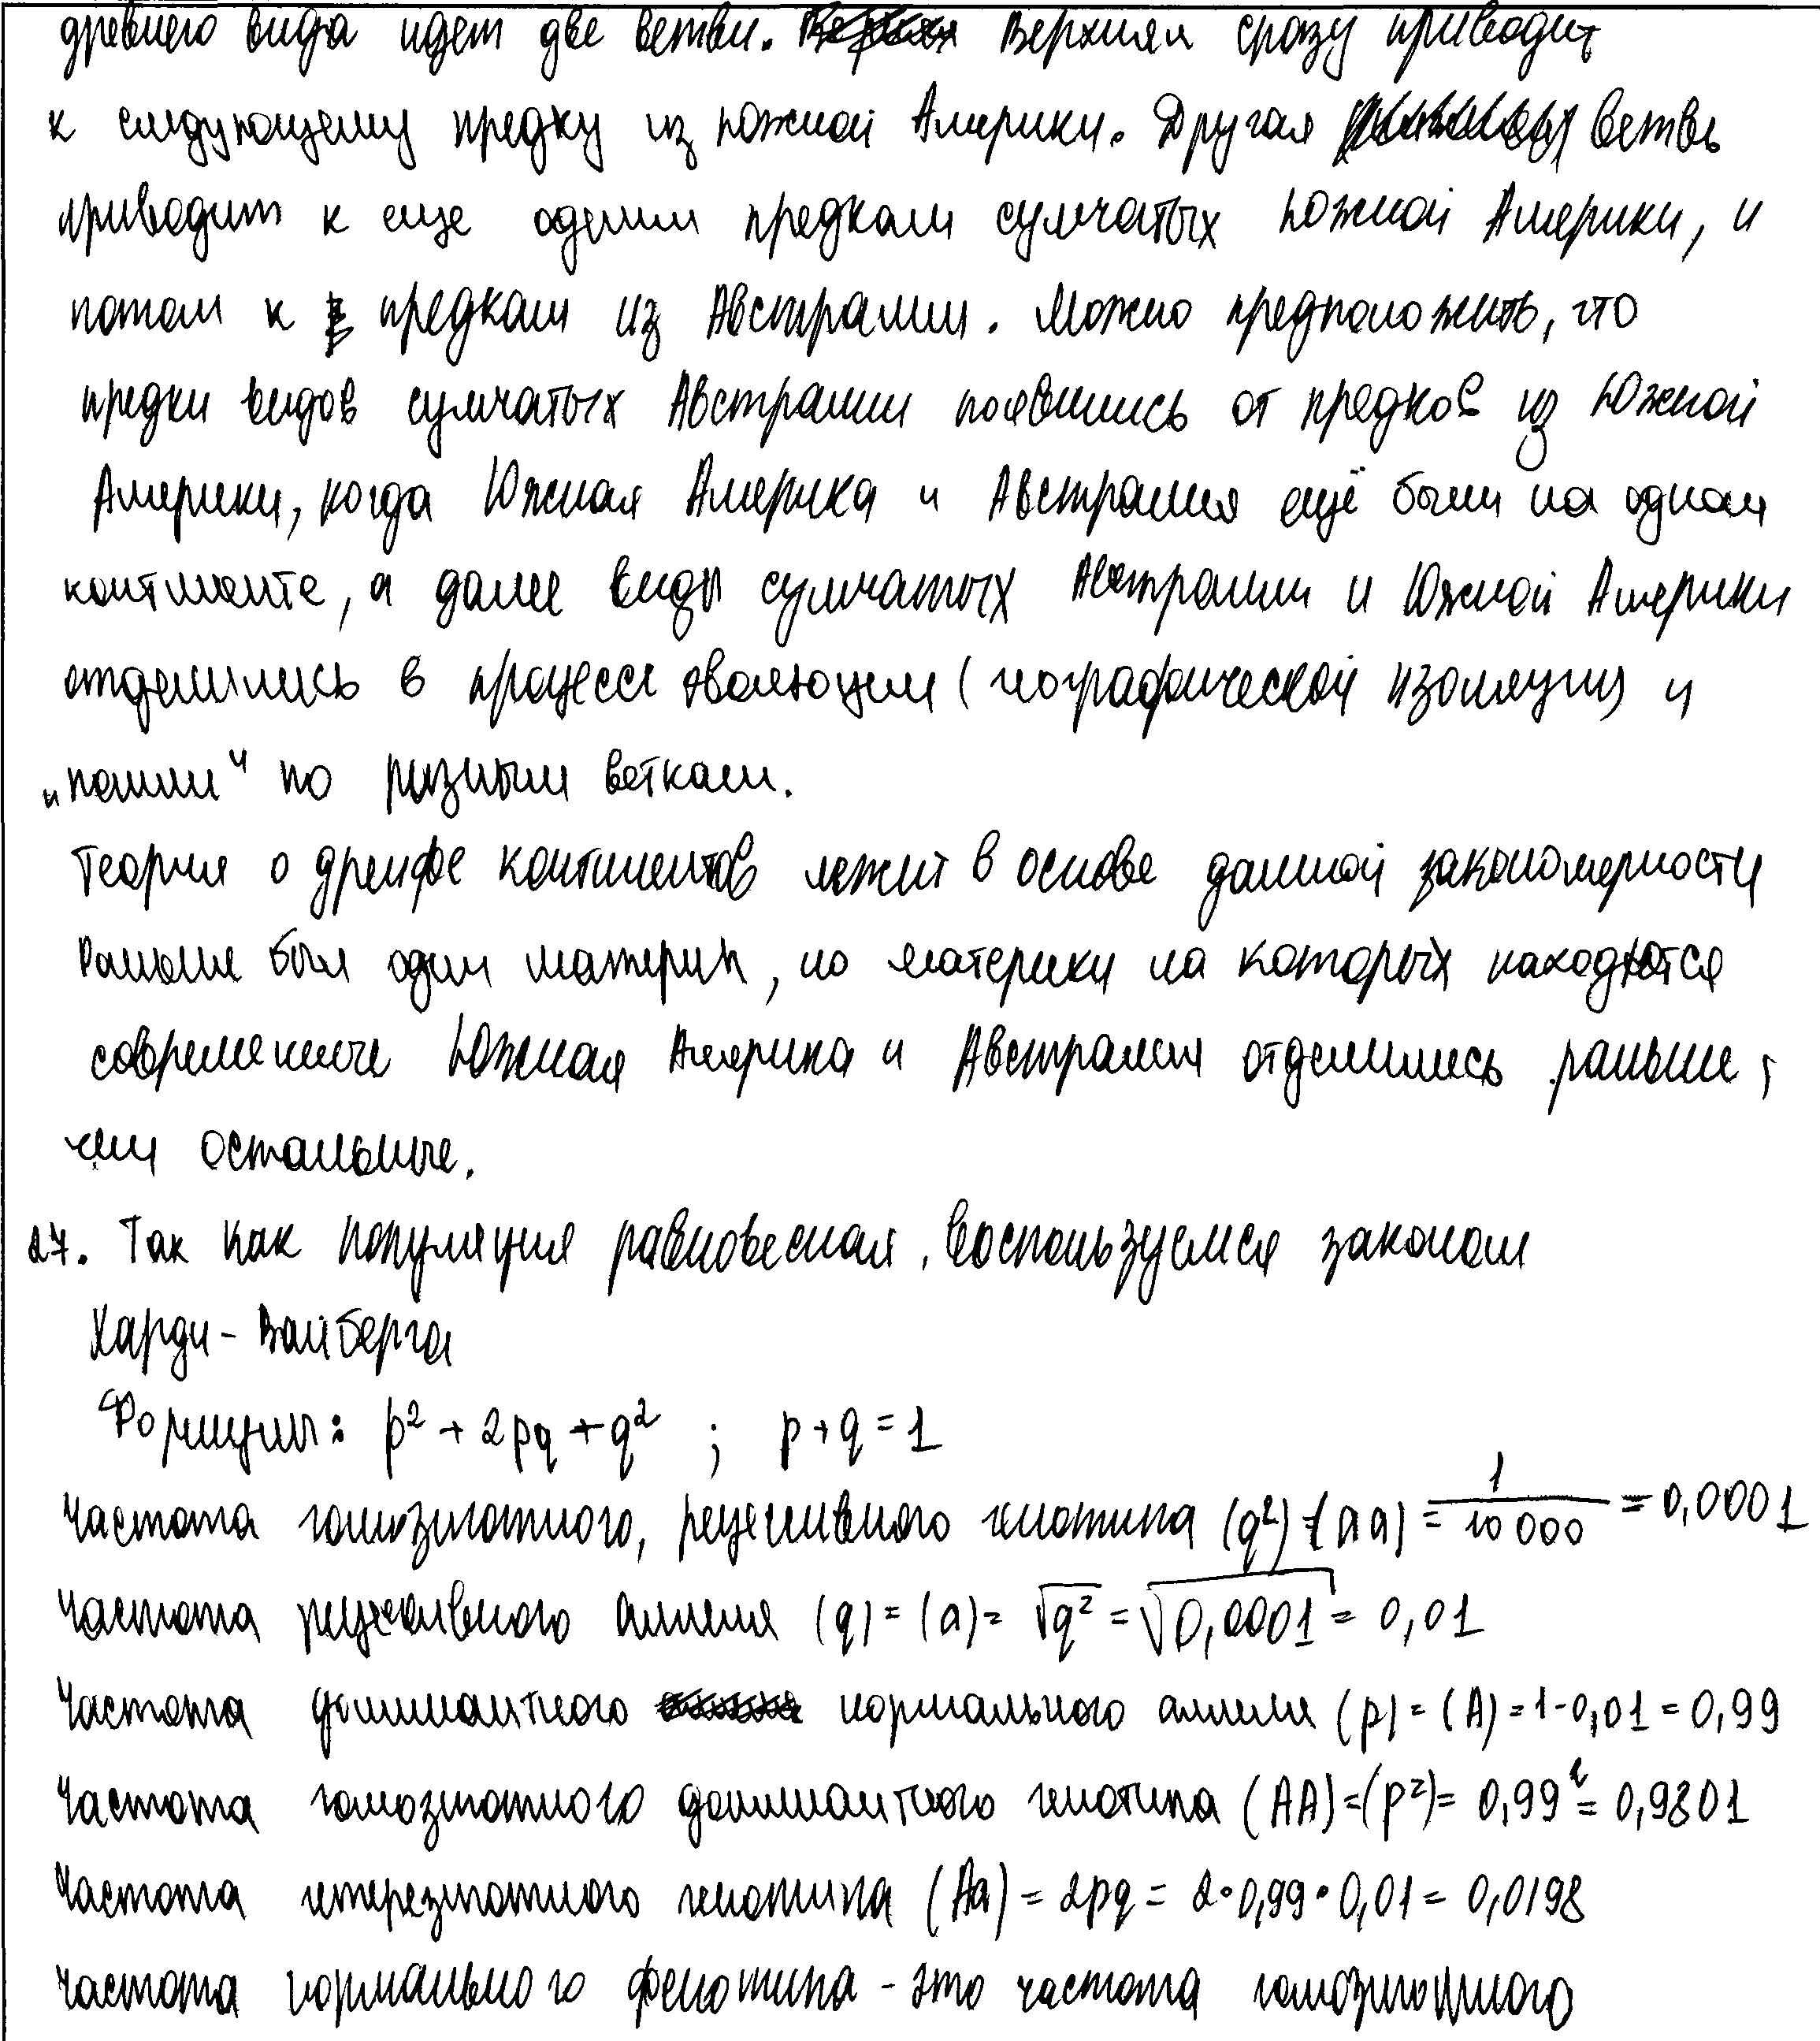 древнего вида идет две ветви. Верхняя сразу приводит
к следующему предку из южной Америки. Другая ветвь
приводит к еще одним предкам сумчатых южной Америки, и
потом к предкам из Австралии. Можно предположить, что
предки видов сумчатых Австралии появились от предков из Южной
Америки, когда Южная Америка и Австралия ещё были на одном
континенте, а далее виды сумчатых Австралии и Южной Америки
отделились в процессе эволюции (географической изоляции) и
„пошли“ по разным веткам.
Теория о дрейфе континентов лежит в основе данной закономерности
Раньше был один материк, но материки на которых находятся
современные Южная Америка и Австралия отделились раньше,
чем остальные.
27. Так как популяция равновесная, воспользуемся законом
Харди - Вайберга
Формулы: p² + 2pq + q² ; p + q = 1
Частота гомозиготного, рецессивного генотипа (q²) = (aa) = 1/10 000 = 0,0001
Частота рецессивного аллеля (q) = (a) = √q² = √0,0001 = 0,01
Частота доминантного нормального аллеля (p) = (A) = 1 - 0,01 = 0,99
Частота гомозиготного доминантного генотипа (AA) = (p²) = 0,99² = 0,9801
Частота гетерезиготного генотипа (Aa) = 2pq = 2 • 0,99 • 0,01 = 0,0198
Частота нормального фенотипа - это частота гомозиготного